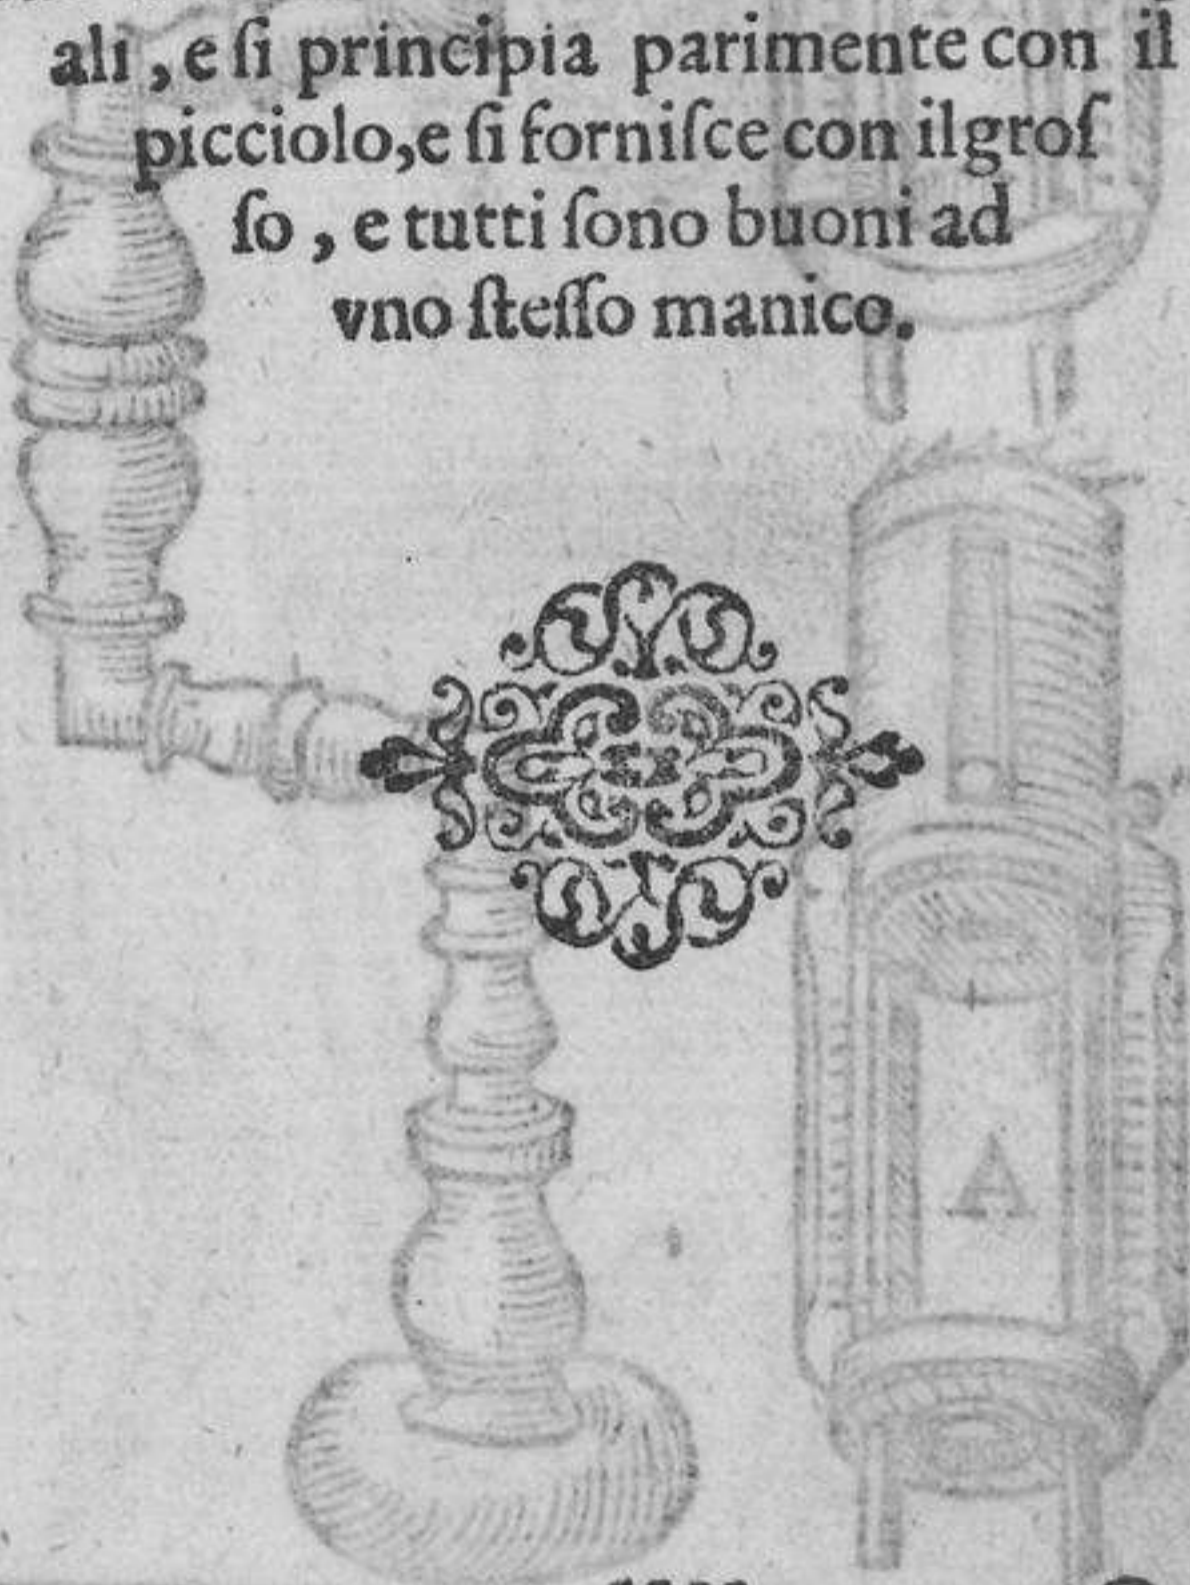 ali, e ſi principia parimente con il
picciolo, e ſi forniſce con ilgroſ
ſo, e tutti ſono buoni ad
vno ſteſſo manico.
A